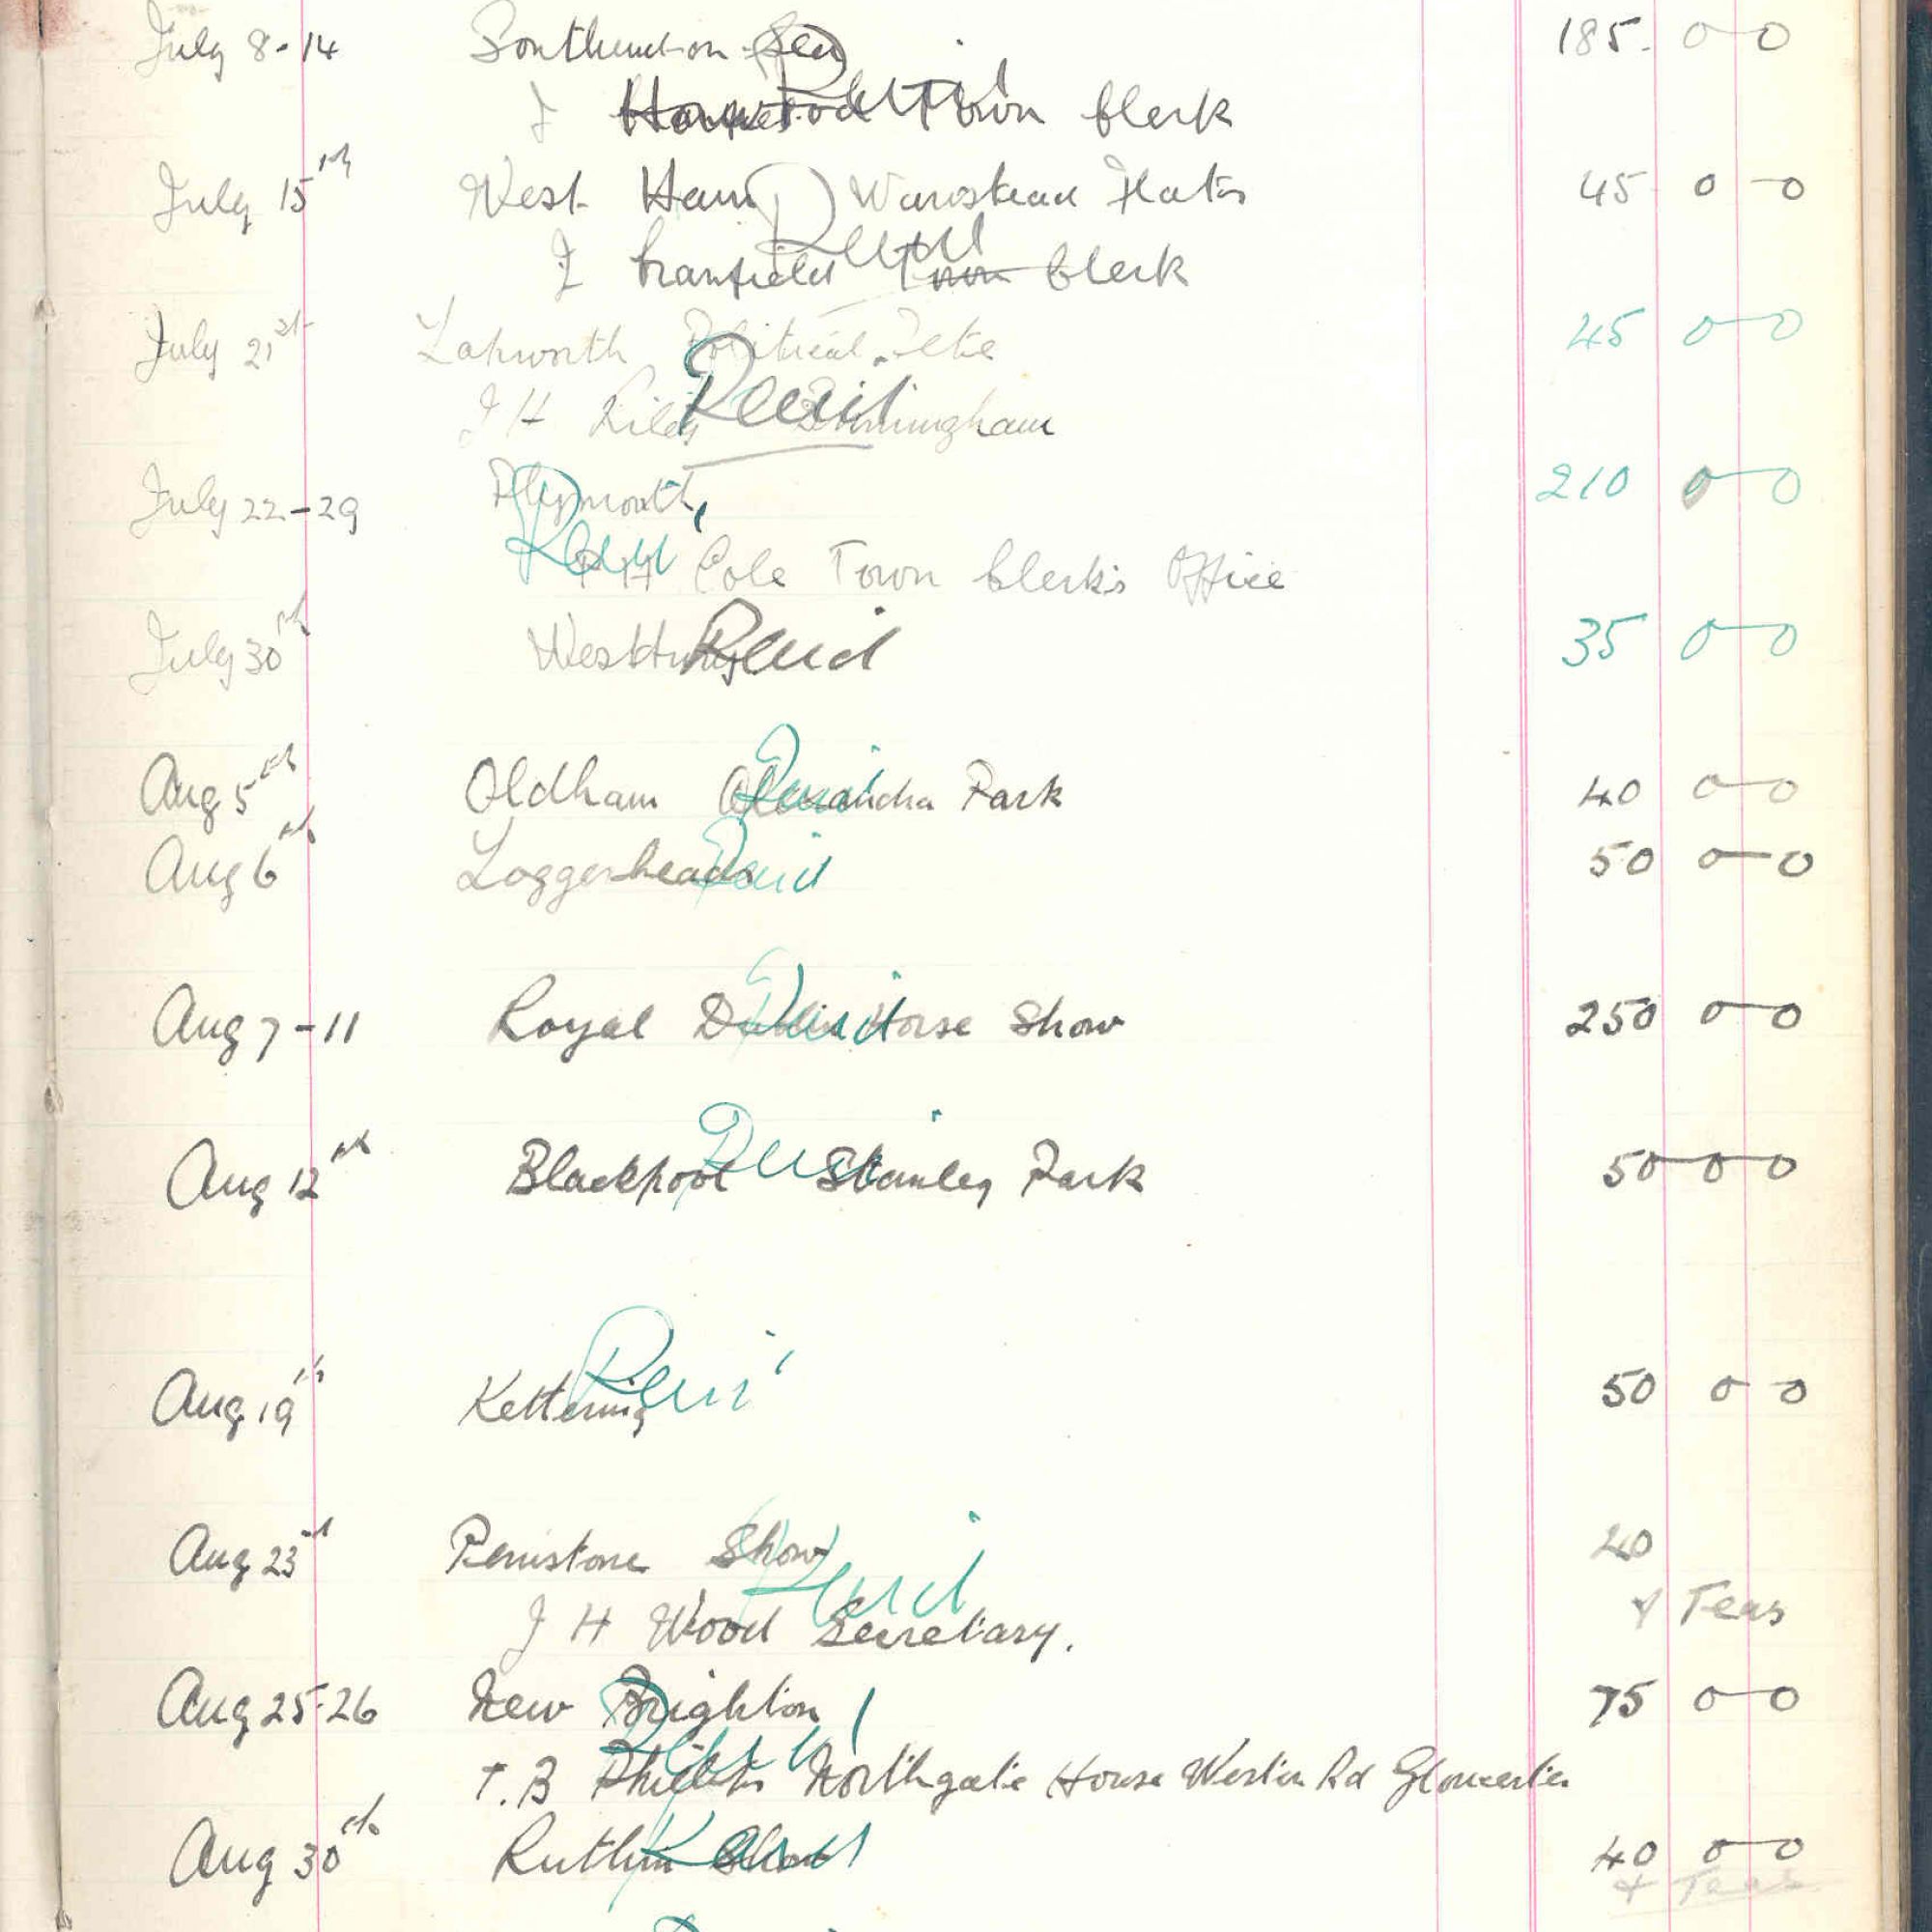 July 8-14 Southend-on-Sea 185. 0 0
J Town Clerk
Recd
July 15th West Ham Wanstead Flats 45 0 0
Recd
Cranfield Town Clerk
July 21st Lapworth Political Fete 45 0 0
J H Riley Birmingham
Recd
July 22-29 Plymouth 210 0 0
Recd
Cole Town Clerk's Office
July 30th Recd 35 0 0
Aug 5th Oldham Alexandra Park 40 0 0
Recd
Aug 6th Loggerheads 50 0 0
Recd
Aug 7-11 Royal Dublin Horse Show 250 0 0
Recd
Aug 12th Blackpool Stanley Park 50 0 0
Recd
Aug 19th Kettering 50 0 0
Recd
Aug 23rd Penistone Show 40
& Teas
Recd
J H Wood Secretary.
Aug 25-26 New Brighton 75 0 0
Recd
T. B Northgate House Western Rd Gloucester
Aug 30th Ruthin Show 40 0 0
Recd
+ Teas